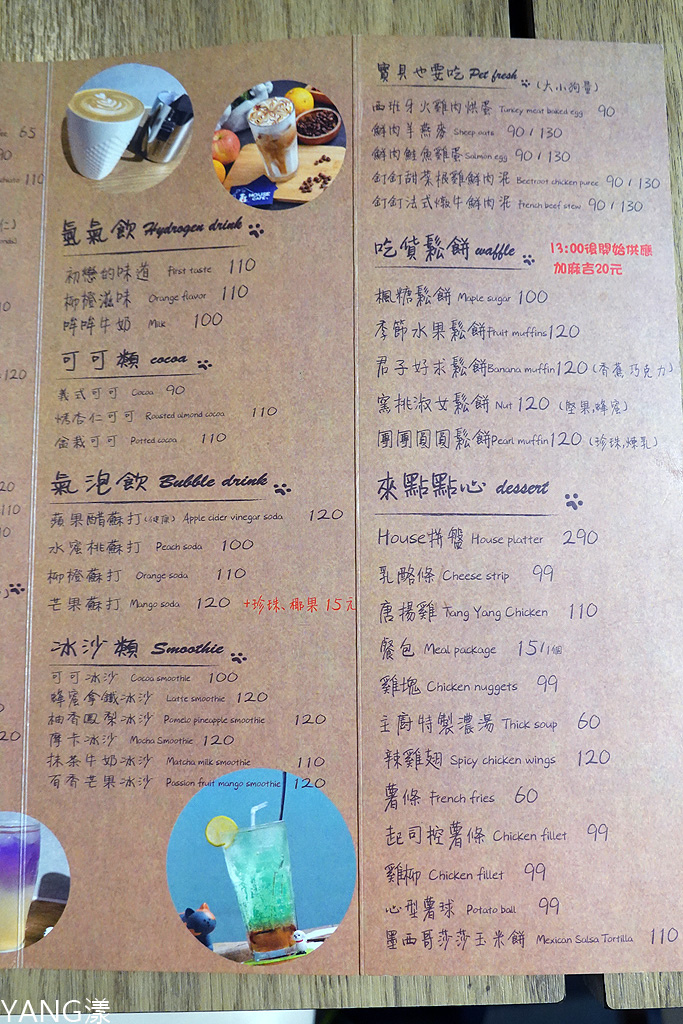 65
90
110
(二)
120
110
20
HOUSE CAFE
氫氣飲 Hydrogen drink
初戀的味道 First taste 110
柳橙滋味 Orange flavor 110
哞哞牛奶 Milk 100
可可類 cocoa
義式可可 Cocoa 90
烤杏仁可可 Roasted almond cocoa 110
盆栽可可 Potted cocoa 110
氣泡飲 Bubble drink
蘋果醋蘇打(健康) Apple cider vinegar soda 120
水蜜桃蘇打 Peach soda 100
柳橙蘇打 Orange soda 110
芒果蘇打 Mango soda 120 +珍珠、椰果 15元
冰沙類 Smoothie
可可冰沙 Cocoa smoothie 100
蜂蜜拿鐵冰沙 Latte smoothie 120
柚香鳳梨冰沙 Pomelo pineapple smoothie 120
摩卡冰沙 Mocha Smoothie 120
抹茶牛奶冰沙 Matcha milk smoothie 110
百香芒果冰沙 Passion fruit mango smoothie 120
寶貝也要吃 Pet fresh (大小狗量)
西班牙火雞肉烘蛋 Turkey meat baked egg 90
鮮肉羊燕麥 Sheep oats 90/130
鮮肉鮭魚雞蛋 Salmon egg 90/130
釘釘甜菜根雞鮮肉泥 Beetroot chicken puree 90/130
釘釘法式燉牛鮮肉泥 French beef stew 90/130
吃貨鬆餅 waffle 13:00後開始供應
加麻吉20元
楓糖鬆餅 Maple sugar 100
季節水果鬆餅 Fruit muffins 120
君子好求鬆餅 Banana muffin 120 (香蕉巧克力)
窯桃淑女鬆餅 Nut 120 (堅果,蜂蜜)
團團圓圓鬆餅 Pearl muffin 120 (珍珠,煉乳)
來點點心 dessert
House拼盤 House platter 290
乳酪條 Cheese strip 99
唐揚雞 Tang Yang Chicken 110
餐包 Meal package 15/1個
雞塊 Chicken nuggets 99
主廚特製濃湯 Thick soup 60
辣雞翅 Spicy chicken wings 120
薯條 French fries 60
起司控薯條 Chicken fillet 99
雞柳 Chicken fillet 99
心型薯球 Potato ball 99
墨西哥莎莎玉米餅 Mexican Salsa Tortilla 110
YANG漾